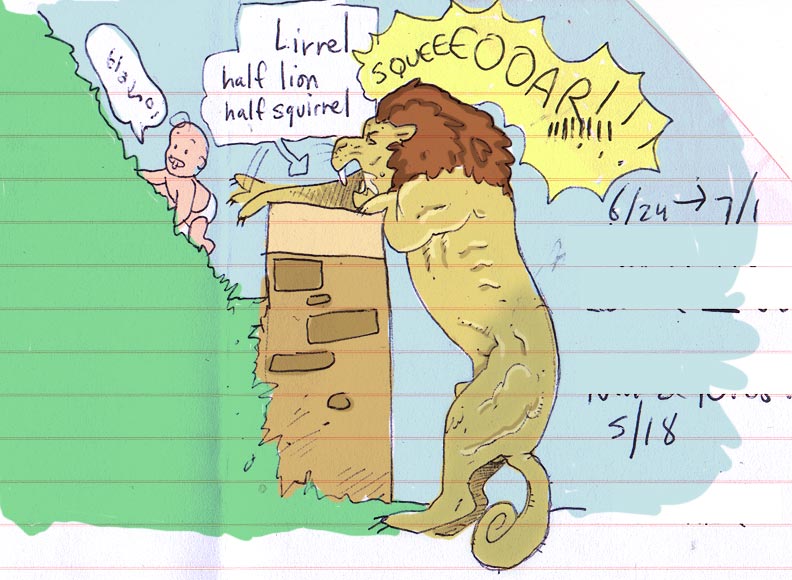 Lirrel
half lion
half squirrel
SQUEEEOOAR!!
!!!!!!!!
6/24 → 7/1
5/18